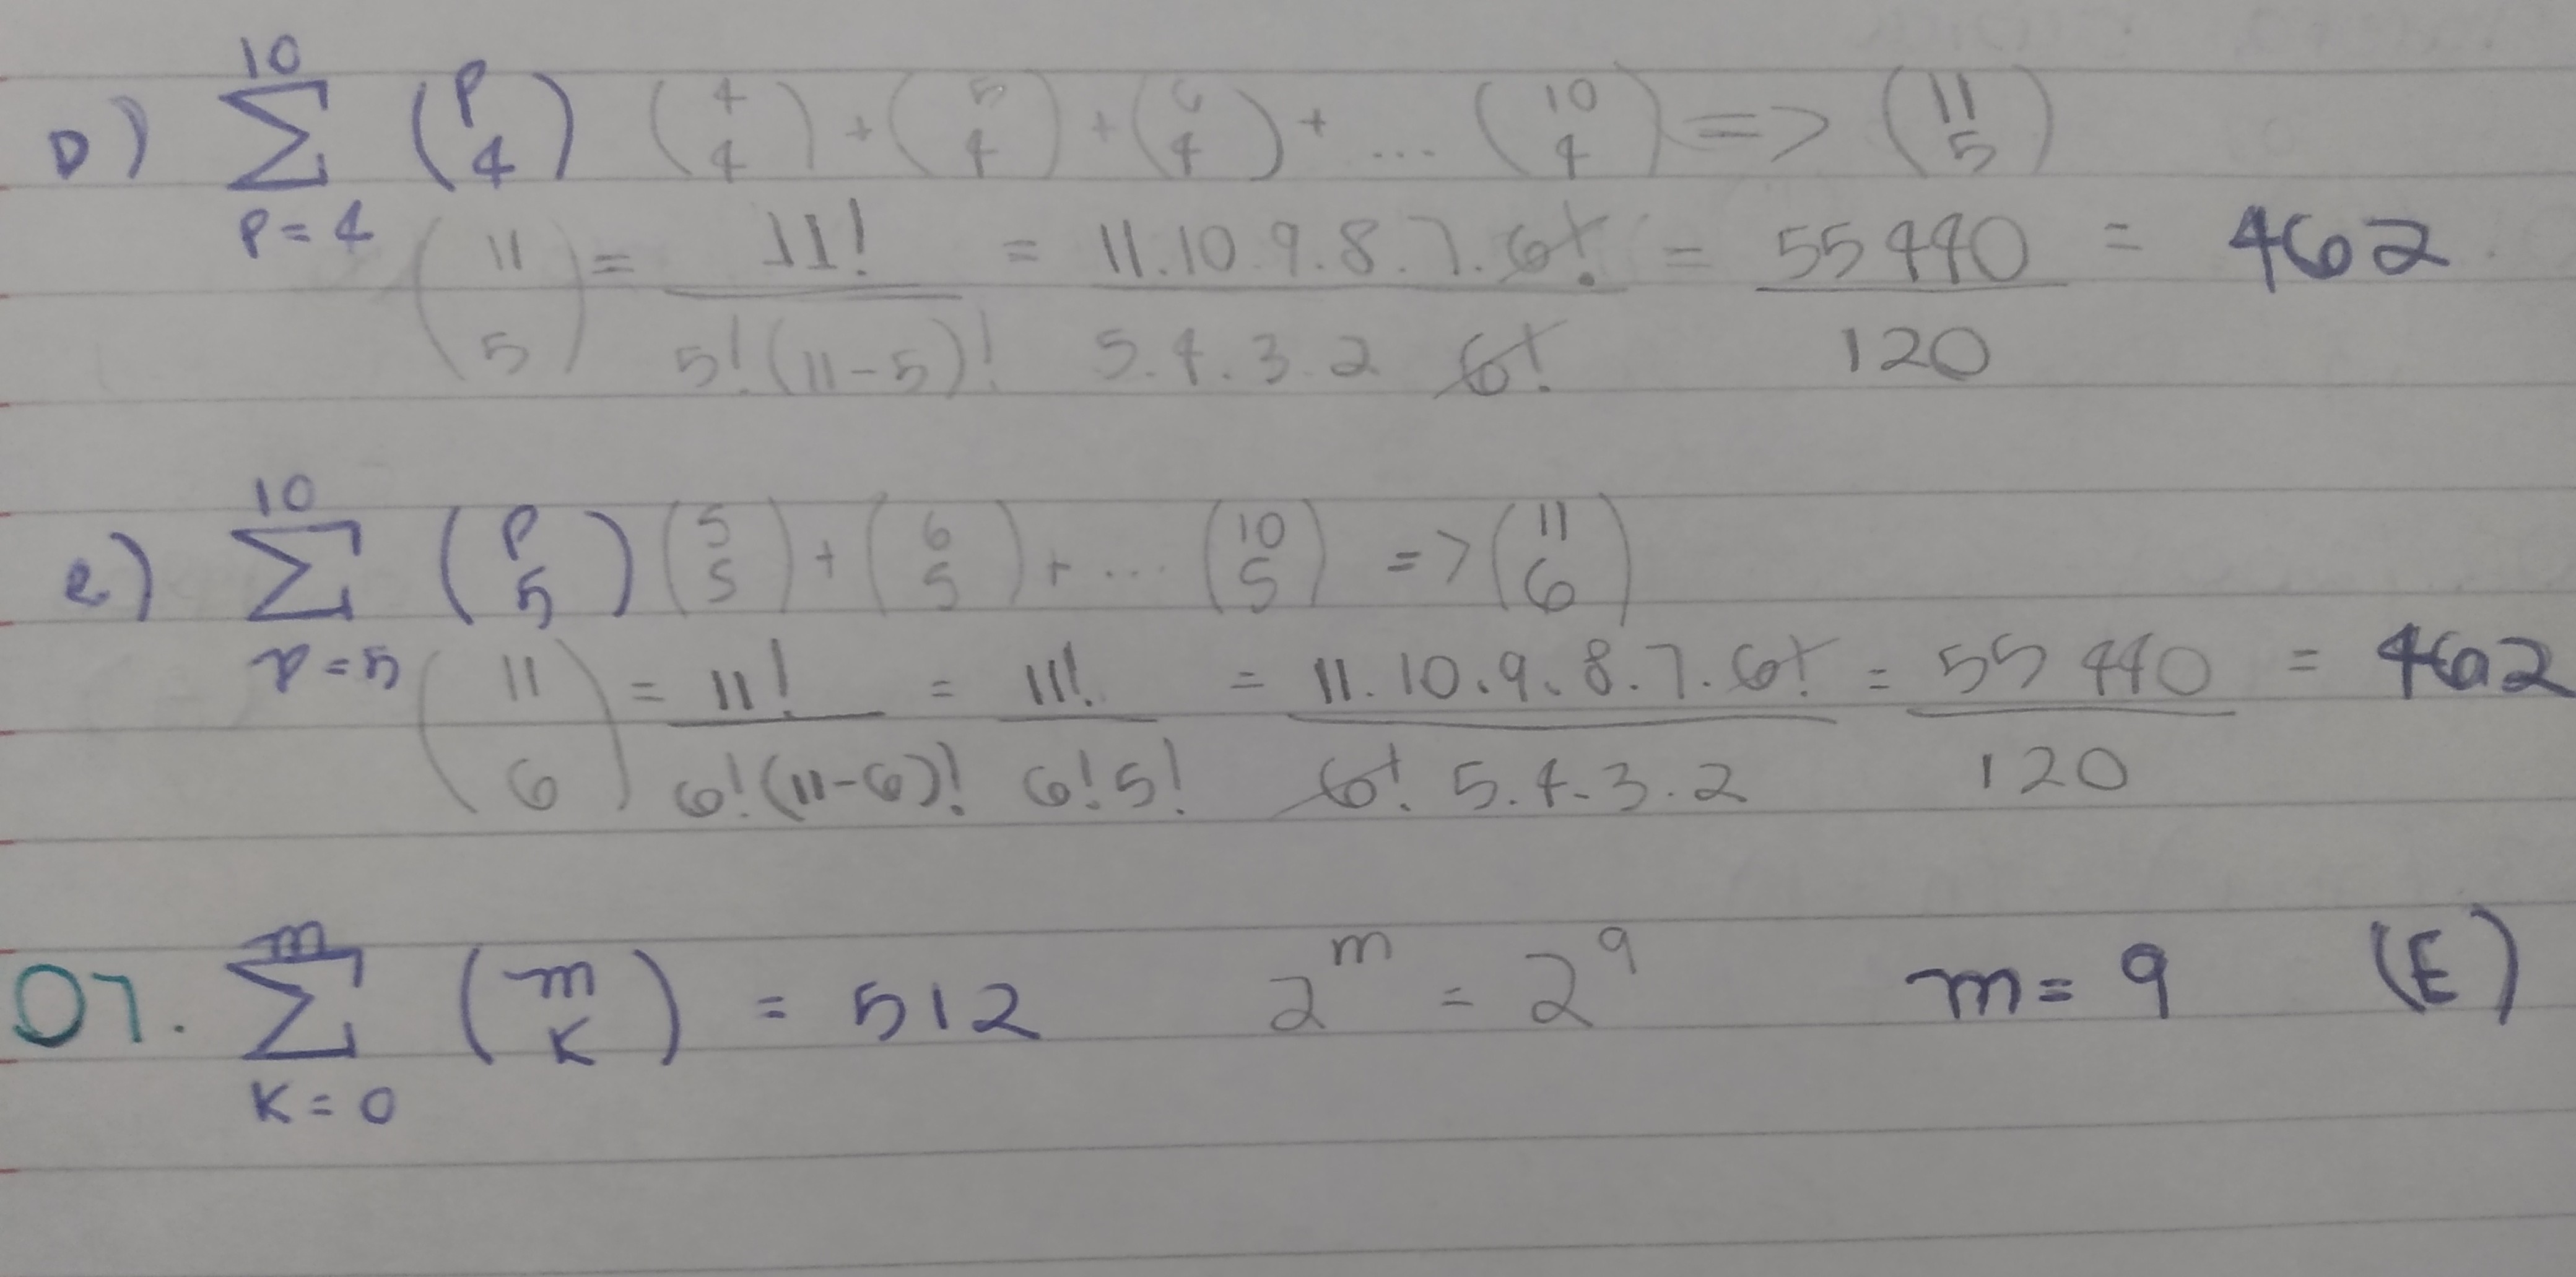 D) 10 Σ p=4 (p 4) (4 4) + (5 4) + (6 4) + ... (10 4) => (11 5)
(11 5) = 11! / 5!(11-5)! = 11.10.9.8.7.6! / 5.4.3.2 6! = 55440 / 120 = 462
e) 10 Σ p=5 (p 5) (5 5) + (6 5) + ... (10 5) => (11 6)
(11 6) = 11! / 6!(11-6)! = 11! / 6!5! = 11.10.9.8.7.6! / 6! 5.4.3.2 = 55440 / 120 = 462
07. m Σ K=0 (m K) = 512 2^m = 2^9 m=9 (E)